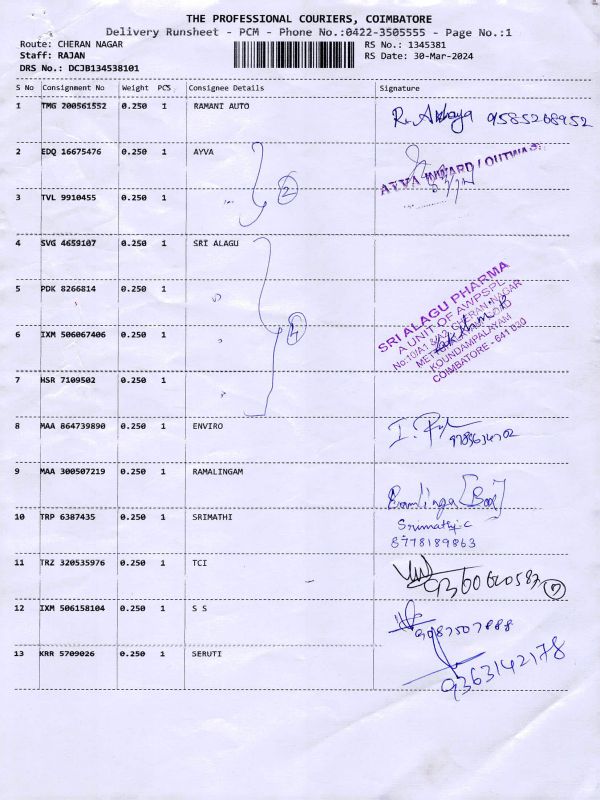 THE PROFESSIONAL COURIERS, COIMBATORE
Delivery Runsheet - PCM - Phone No.:0422-3505555 - Page No.:1
Route: CHERAN NAGAR RS No.: 1345381
Staff: RAJAN RS Date: 30-Mar-2024
DRS No.: DCJB134538101
S No Consignment No Weight PCS Consignee Details Signature
1 TMG 200561552 0.250 1 RAMANI AUTO 9585268952
2 EDQ 16675476 0.250 1 AYVA AYVA INWARD / OUTWAS
3 TVL 9910455 0.250 1 2
4 SVG 4659107 0.250 1 SRI ALAGU
5 PDK 8266814 0.250 1
SRI ALAGU PHARMA
A UNIT OF AWPSPL
CHERAN NAGAR
KOUNDAMPALAYAM
COIMBATORE - 641 030
6 IXM 506067406 0.250 1 4
7 HSR 7109502 0.250 1
8 MAA 864739890 0.250 1 ENVIRO
9 MAA 300507219 0.250 1 RAMALINGAM
10 TRP 6387435 0.250 1 SRIMATHI Srimathi.c
8778189863
11 TRZ 320535976 0.250 1 TCI 7
12 IXM 506158104 0.250 1 S S
13 KRR 5709026 0.250 1 SERUTI 9363142178